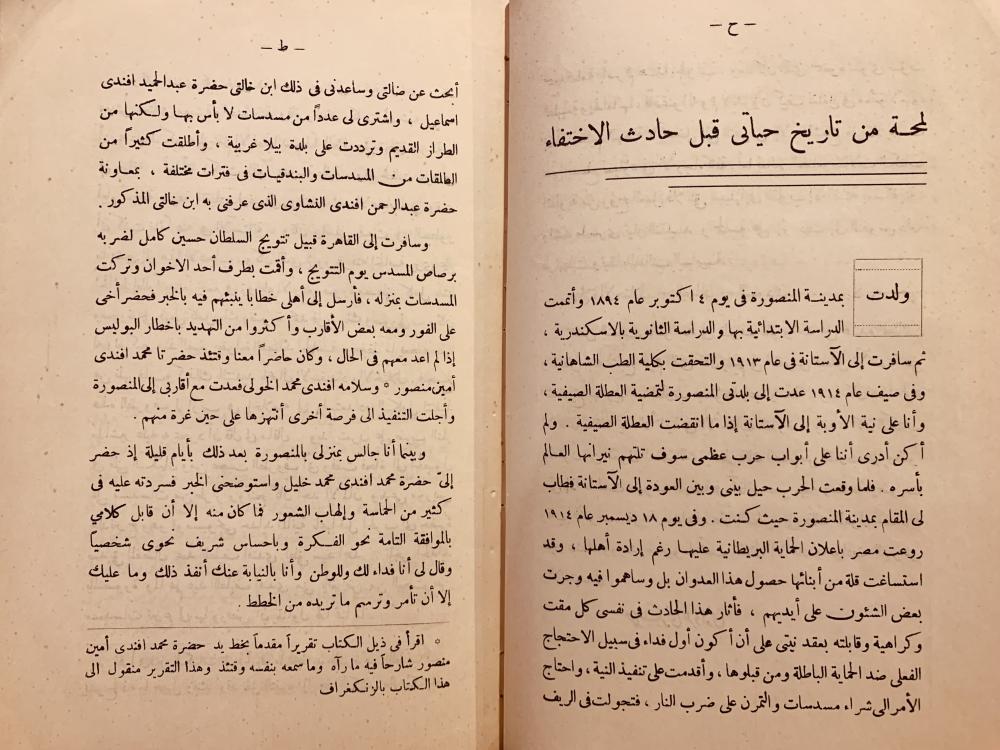 — ح —
لمحة من تاريخ حياتى قبل حادث الاختفاء
ولدت
بمدينة المنصورة فى يوم ٤ اكتوبر عام ١٨٩٤ وأتممت
الدراسة الابتدائية بها والدراسة الثانوية بالاسكندرية ،
ثم سافرت إلى الآستانة فى عام ١٩١٣ والتحقت بكلية الطب الشاهانية ،
وفى صيف عام ١٩١٤ عدت إلى بلدتى المنصورة لتمضية العطلة الصيفية ،
وأنا على نية الأوبة إلى الآستانة إذا ما انقضت العطلة الصيفية . ولم
أكن أدرى أننا على أبواب حرب عظمى سوف تلتهم نيرانها العالم
بأسره . فلما وقعت الحرب حيل بينى وبين العودة إلى الآستانة فطاب
لى المقام بمدينة المنصورة حيث كنت . وفى يوم ١٨ ديسمبر عام ١٩١٤
روعت مصر باعلان الحماية البريطانية عليها رغم إرادة أهلها ، وقد
استساغت قلة من أبنائها حصول هذا العدوان بل وساهموا فيه وجرت
بعض الشئون على أيديهم ، فأثار هذا الحادث فى نفسى كل مقت
وكراهية وقابلته بعقد نيتى على أن أكون أول فداء فى سبيل الاحتجاج
الفعلى ضد الحماية الباطلة ومن قبلوها ، وأقدمت على تنفيذ النية ، واحتاج
الأمر الى شراء مسدسات والتمرن على ضرب النار ، فتجولت فى الريف
— ط —
أبحث عن ضالتى وساعدنى فى ذلك ابن خالتى حضرة عبدالحميد افندى
اسماعيل ، واشترى لى عدداً من مسدسات لا بأس بها ولكنها من
الطراز القديم وترددت على بلدة بيلا غربية ، وأطلقت كثيراً من
الطلقات من المسدسات والبندقيات فى فترات مختلفة ، بمعاونة
حضرة عبدالرحمن افندى النشاوى الذى عرفنى به ابن خالتى المذكور .
وسافرت إلى القاهرة قبيل تتويج السلطان حسين كامل لضربه
برصاص المسدس يوم التتويج ، وأقمت بطرف أحد الاخوان وتركت
المسدسات بمنزله ، فأرسل إلى أهلى خطابا ينبئهم فيه بالخبر فحضر أخى
على الفور ومعه بعض الأقارب وأكثروا من التهديد باخطار البوليس
إذا لم اعد معهم فى الحال ، وكان حاضراً معنا وقتئذ حضرتا محمد افندى
أمين منصور * وسلامه افندى محمد الخولى فعدت مع أقاربى إلى المنصورة
وأجلت التنفيذ الى فرصة أخرى أنتهزها على حين غرة منهم .
وبينما أنا جالس بمنزلى بالمنصورة بعد ذلك بأيام قليلة إذ حضر
إلىّ حضرة محمد افندى محمد خليل واستوضحنى الخبر فسردته عليه فى
كثير من الحماسة وإلهاب الشعور فما كان منه إلا أن قابل كلامي
بالموافقة التامة نحو الفكرة وباحساس شريف نحوى شخصياً
وقال لى أنا فداء لك وللوطن وأنا بالنيابة عنك أنفذ ذلك وما عليك
إلا أن تأمر وترسم ما تريده من الخطط .
* اقرأ فى ذيل الكتاب تقريراً مقدماً بخط يد حضرة محمد افندى أمين
منصور شارحاً فيه ما رآه وما سمعه بنفسه وقتئذ وهذا التقرير منقول الى
هذا الكتاب بالزنكغراف